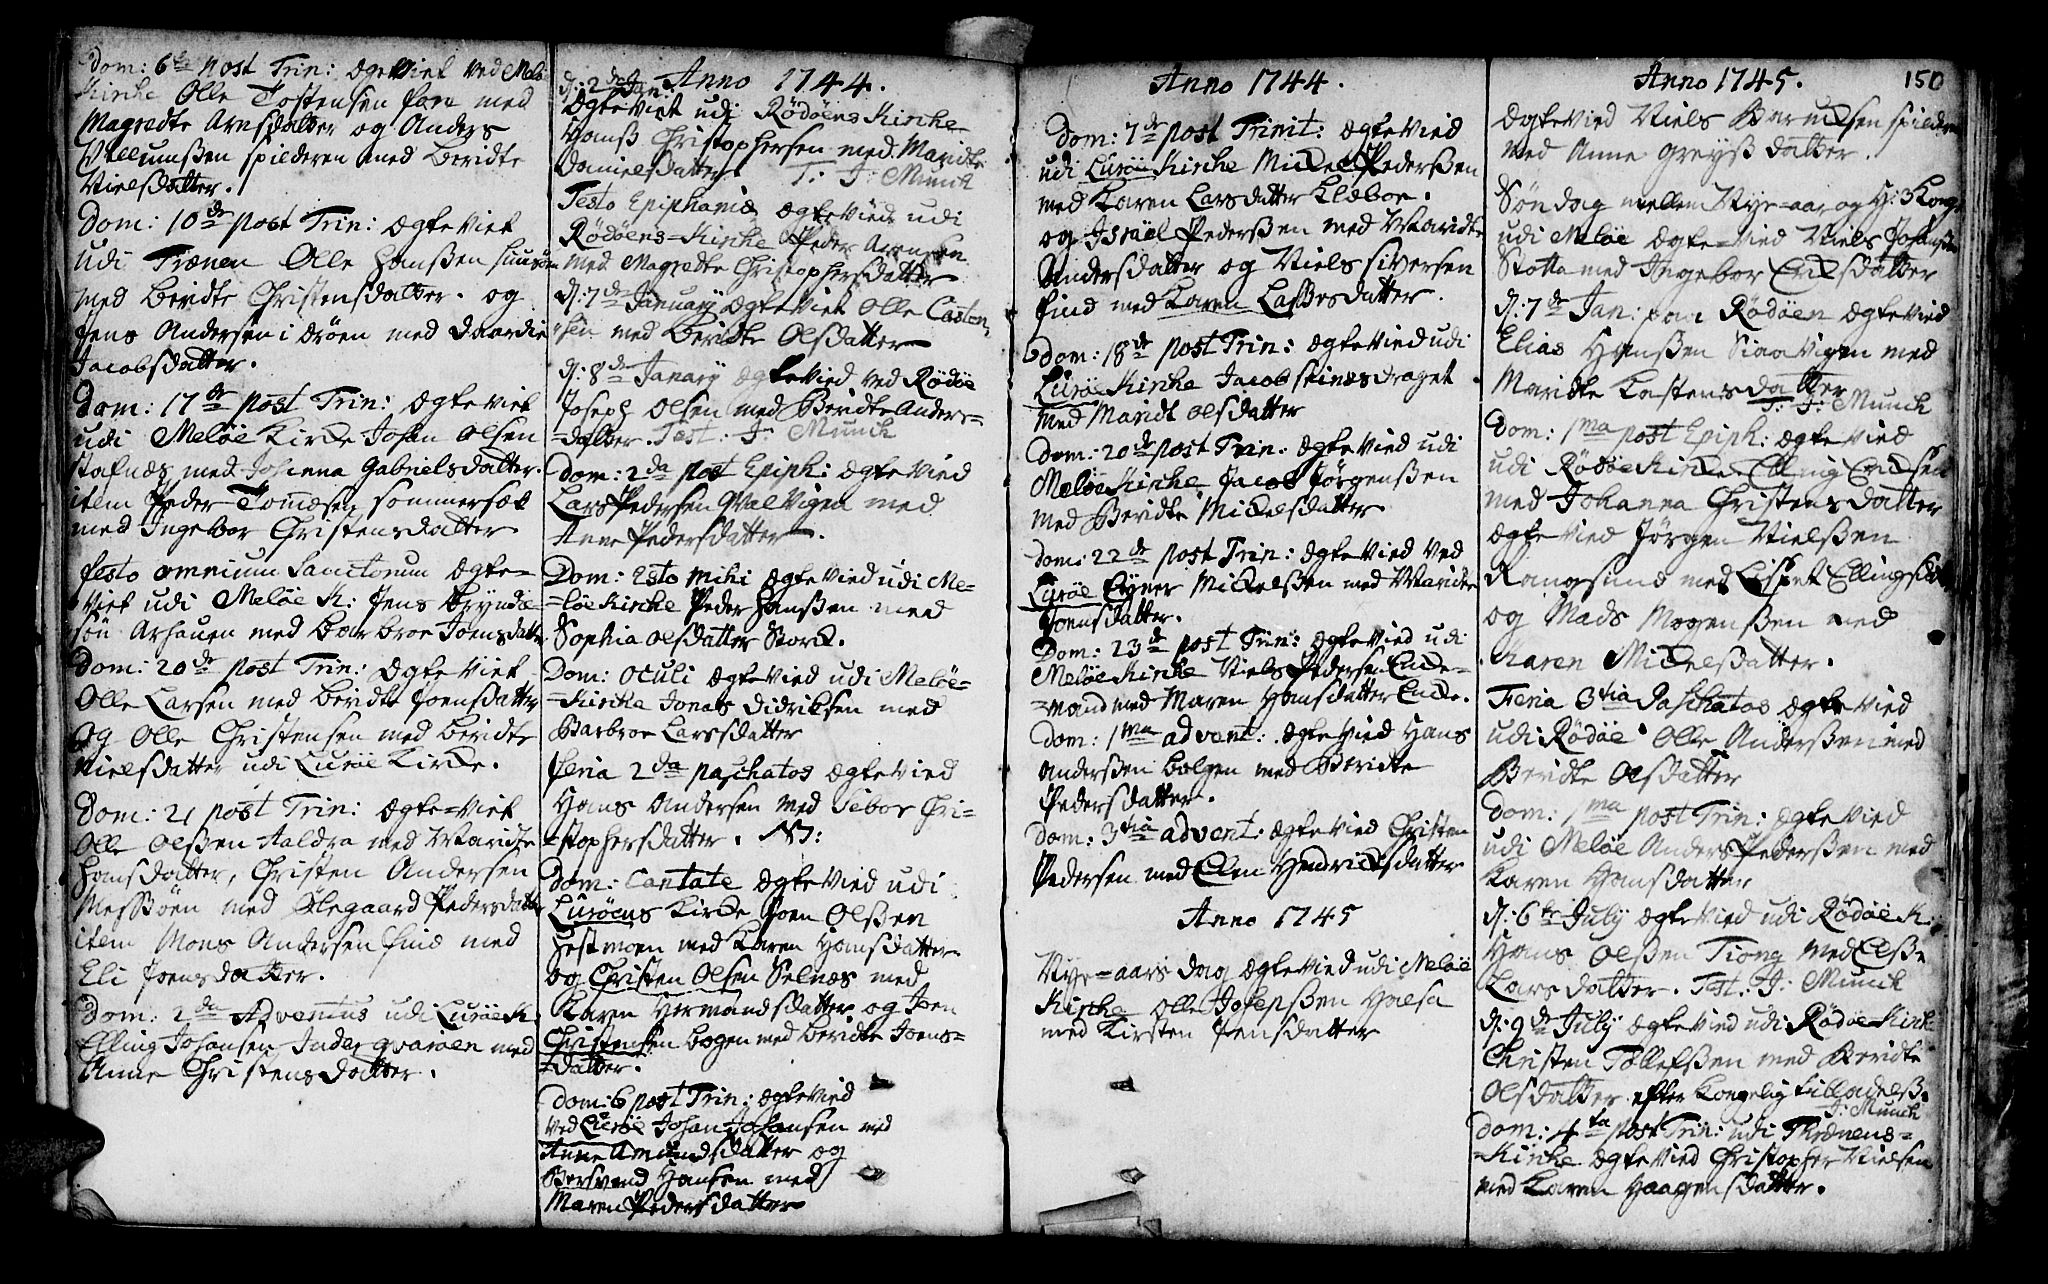 Dom: 6te post Trin: Ægteviet ved Melø
Kirche Olle Tostensen fore med
Magredte Arnsdatter og Anders
Villumsen spilderen med Beridte
Nielsdatter.
Dom: 10de post Trin: Ægteviet
udi Trænen Olle Hanssen
med Beridte Christensdatter. og
Jens Andersen i med
Jacobsdatter.
Dom: 17de post Trin: Ægteviet
udi Meløe Kircke Johan Olsen
stafnæs med Johanna Gabrielsdatter.
item Peder Tomæsen sommersæt
med Ingebor Christensdatter
festo omnium Sanctorum Ægte=
viet udi Meløe K: Jens Bryndæ=
søn Arhauen med Barbroe Joensdatter
Dom: 20de post Trin: Ægteviet
Olle Larsen med Beridte Joensdatter
Og Olle Christensen med Beridte
Nielsdatter udi Lurøe Kircke.
Dom: 21 post Trin: Ægte=viet
Olle Olssen Aaldra med Maridte
Hansdatter, Christen Andersen
Messøen med Ølegaard Pedersdatter
item Mons Andersen find med
Eli Joensdatter.
Dom: 2da Adventus udi Lurøe K:
Elling Johansen Inder qvarøen med
Anne Christensdatter.
Anno 1744.
d: 2de Jan:
Ægteviet udi Rødøens Kirche
Hanss Christophersen med Maridte
Danielsdatter. T: J: Munck
Festo Epiphaniæ Ægteviede udi
Rødøens=Kirche Peder Arnsen
med Magredte Christophersdatter
d: 7de January Ægteviet Olle Casten=
=sen med Beridte Olsdatter
d: 8de Janary Ægtevied ved Rødøe
Joseph Olsen med Beridte Anders=
=datter. Test: J: Munck
Dom: 2da post Epiph: Ægtevied
Lars Pedersen Qvalvigen med
Anne Pedersdatter.
Dom: Esto mihi Ægtevied udi Me=
=løe Kirche Peder Hanssen med
Sophia Olsdatter Storck.
Dom: Oculi Ægtevied udi Meløe=
=Kirche Jonas Didriksen med
Barbroe Larssdatter
Feria 2da paschatos Ægtevied
Hans Andersen med Sebor Chri=
=stophersdatter. NB:
Dom: Cantate Ægtevied udi
Lurøens Kircke Joen Olssen
Hestmoen med Karen Hansdatter
og Christen Olsen Selnæs med
Karen Hermandsdatter og Joen
Christensen bogen med Beridte Joens=
=datter.
Dom: 6 post Trin: Ægtevied
ved Lurøe Johan Johansen med
Anne Amundsdatter og
Bersvend Hansen med
Maren Pedersdatter
Anno 1744.
Dom: 7de post Trinit: Ægtevied
udi Lurøe Kirche Mickel Pederssen
med Karen Larsdatter Klæboe.
og Israel Pederssen med Maridte
Andersdatter og Niels siversen
find med Karen Lassesdatter.
Dom: 18de post Trin: Ægtevied udi
Lurøe Kirche Jacob skinæsdraget
med Maridt Olsdatter
Dom: 20de post Trin: Ægtevied udi
Meløe Kirche Jacob Jørgenssen
med Beridte Mickelsdatter
Dom: 22de post Trin: Ægtevied ved
Lurøe Eyner Mickelssen med Maridte
Joensdatter.
Dom: 23de post Trin: Ægtevied udi
Meløe Kirche Niels Pedersen Ende=
=vand med Maren Hansdatter Ende.
Dom: 1ma advent: Ægtevied Hans
Anderssen bolgen med Beridte
Pedersdatter.
Dom: 3tia advent: Ægtevied Christen
Pedersen med Elen Hendrichsdatter
Anno 1745
Nye=aars dag Ægtevied udi Meløe
Kirche Olle Josepssen Halsa
med Kirsten Jensdatter
Anno 1745.
150
Ægtevied Niels spildern
med Anne Greyssdatter.
Søndag mellem Nye=aar og H: 3 Kong.
udi Meløe Ægte=vied Niels Johansen
Stotta med Ingebor Ericksdatter
d: 7de Jan: paa Rødøen Ægtevied
Elias Hanssen Siaavigen med
Maridte Kastensdatter
T: J: Munck
Dom: 1ma post Epiph: Ægtevied
udi Rødøe Kircke Elling Ericksen
med Johanna Christensdatter
Ægtevied Jørgen Nielssen
Rangsund med Lisbet Ellingsdatter
og Mads Mogenssen med
Karen Mickelsdatter.
Feria 3tia Paschatos Ægtevied
udi Rødøe Olle Anderssen med
Beridte Olsdatter
Dom: 1ma post Trin: Ægtevied
udi Meløe Anders Pederssen med
Karen Hansdatter
d: 6te July Ægtevied udi Rødøe K:
Hans Olssen Tiong med Elsse
Larsdatter. Test: J: Munck
d: 9de July Ægtevied udi Rødøe Kirk
Christen Tollefssen med Beridte
Olsdatter. efter Kongelig tilladelss.
J: Munck
Dom: 4ta post Trin: udi Thrænens=
=Kirche Ægtevied Christopher Nielsen
med Karen Haagensdatter.